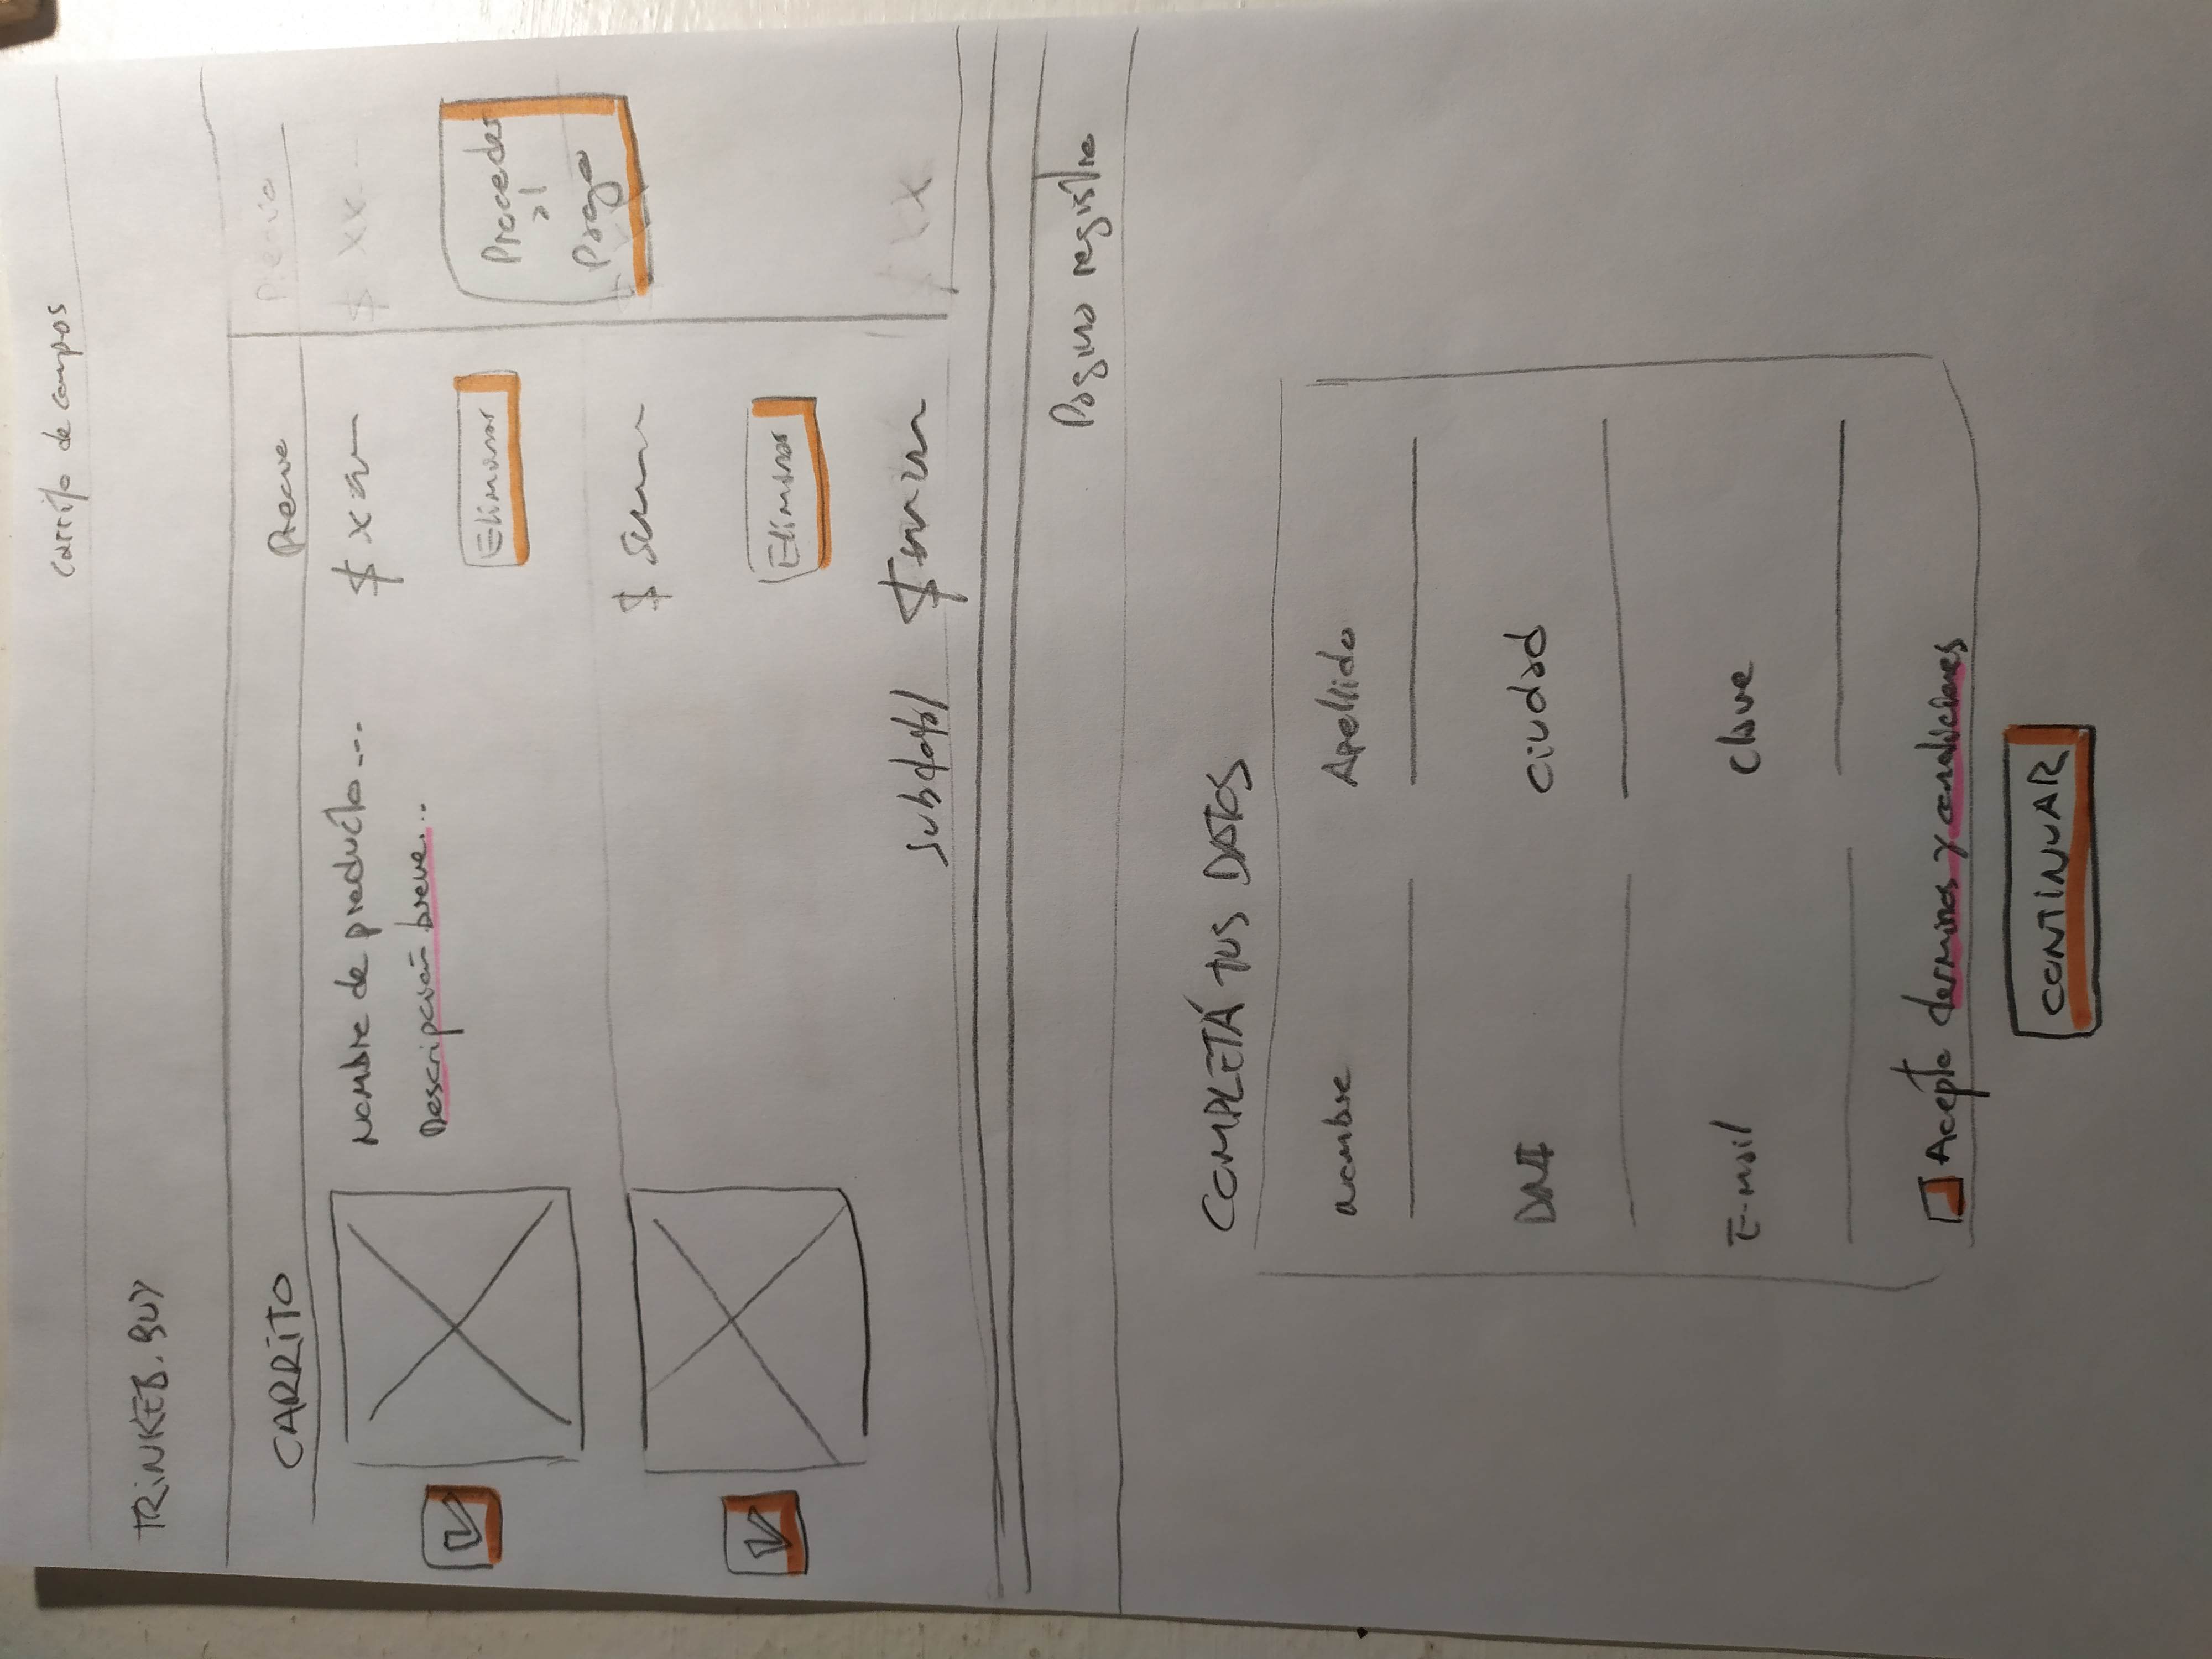 Carrito de compos
TRiNKEB.BUY
CARRiTO
Precio
Precio
Nombre de producto...
$ x
$ XX
Descripción breve...
Eliminar
Proceder
al
Pago
$
Eliminar
Subtotal $
$ XX
Pagina registro
COMPLETÁ TUS DATOS
Nombre
Apellido
DNI
Ciudad
E-mail
Clave
Acepto terminos y condiciones
CONTINUAR